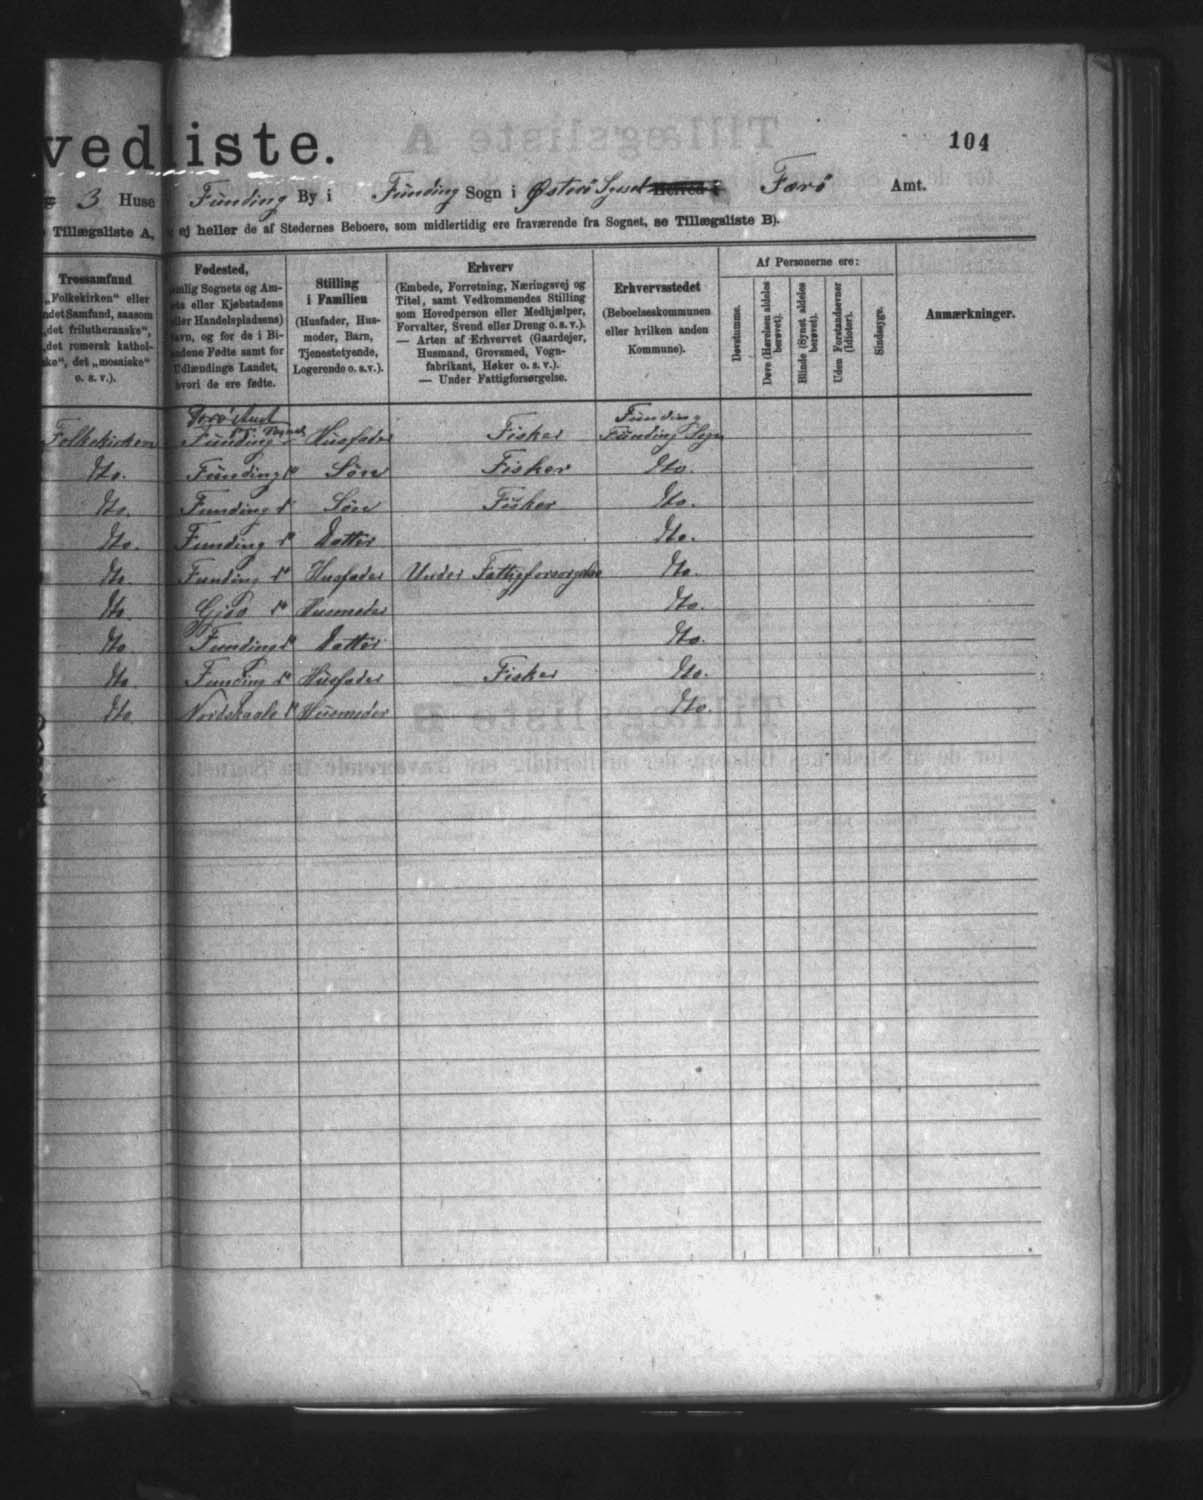 vedliste.
104
3 Huse Funding By i Funding Sogn i Østerö Syssel Herred i Færö Amt.
Tillægsliste A, ej heller de af Stedernes Beboere, som midlertidig ere fraværende fra Sognet, se Tillægsliste B).
Trossamfund
„Folkekirken“ eller
ndet Samfund, saasom
„det frilutheranske“,
„det romersk kathol-
ske“, det „mosaiske“
o. s. v.).
Fødested,
mlig Sognets og Am-
ts eller Kjøbstadens
ller Handelspladsens)
Navn, og for de i Bi-
ndene Fødte samt for
Udlændinge Landet,
hvori de ere fødte.
Stilling
i Familien
(Husfader, Hus-
moder, Barn,
Tjenestetyende,
Logerende o. s. v.).
Erhverv
(Embede, Forretning, Næringsvej og
Titel, samt Vedkommendes Stilling
som Hovedperson eller Medhjælper,
Forvalter, Svend eller Dreng o. s. v.).
— Arten af Erhvervet (Gaardejer,
Husmand, Grovsmed, Vogn-
fabrikant, Høker o. s. v.).
— Under Fattigforsørgelse.
Erhvervsstedet
(Beboelseskommunen
eller hvilken anden
Kommune).
Af Personerne ere:
Døvstumme.
Døve (Hørelsen aldeles
berøvet).
Blinde (Synet aldeles
berøvet).
Uden Forstandsevner
(Idioter).
Sindssyge.
Anmærkninger.
Færö Amt Funding
Folkekirken Funding Sogn Husfader Fisker Funding Sogn
Do. Funding do Sön Fisker Do.
Do. Funding do Sön Fisker Do.
Do. Funding do Datter Do.
Do. Funding do Husfader Under Fattigforsörgelse Do.
Do. Gjov do Husmoder Do.
Do. Funding do Datter Do.
Do. Funding do Husfader Fisker Do.
Do Nordskaale do Husmoder Do.